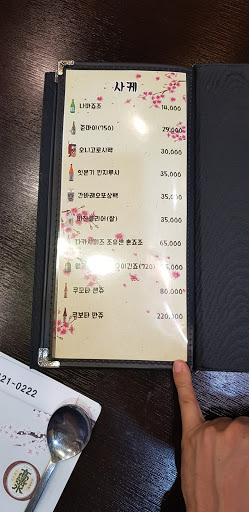 사케
나마죠조 14,000
준마이(750) 29,000
오니고로시팩 30,000
잇본기 킨지루시 35,000
간바레오또상팩 35,000
35,000
죠죠 65,000
(720)
쿠보타 센쥬 80,000
쿠보타 만쥬 220,000
21-0222